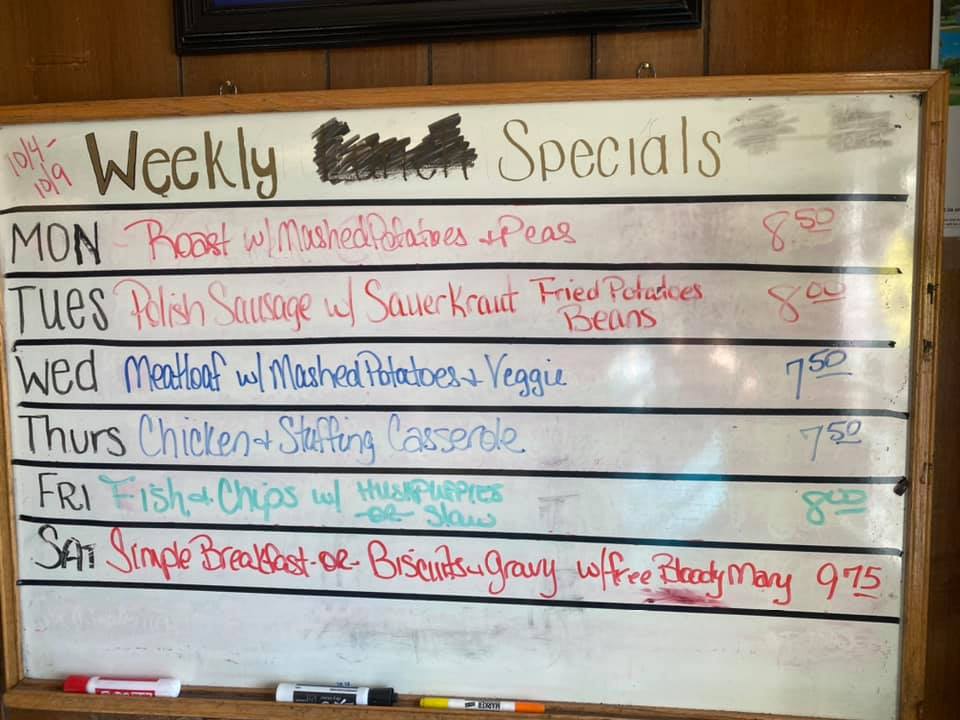 10/4-
10/9
Weekly Specials
MON - Roast w/ Mashed Potatoes + Peas 8.50
TUES Polish Sausage w/ Sauerkraut Fried Potatoes 8.00
Beans
Wed Meatloaf w/ Mashed Potatoes + Veggie 7.50
Thurs Chicken + Stuffing Casserole 7.50
FRI Fish & Chips w/ HUSHPUPPIES 8.00
-OR- Slaw
SAT Simple Breakfast -OR- Biscuits & gravy w/ free Bloody Mary 9.75